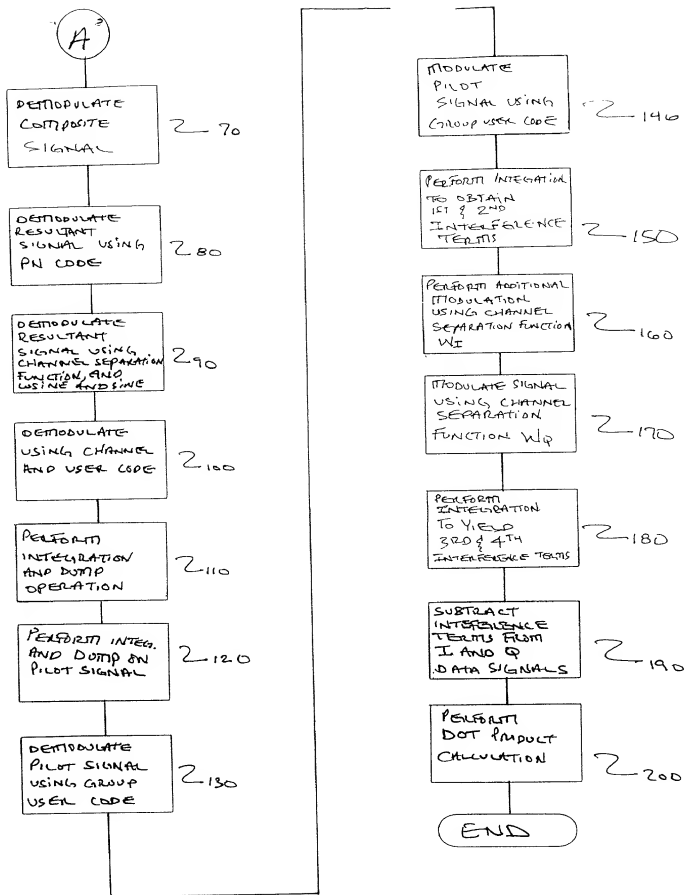 A
DEMODULATE
COMPOSITE
SIGNAL
70
DEMODULATE
RESULTANT
SIGNAL USING
PN CODE
80
DEMODULATE
RESULTANT
SIGNAL USING
CHANNEL SEPARATION
FUNCTION, AND
COSINE AND SINE
90
DEMODULATE
USING CHANNEL
AND USER CODE
100
PERFORM
INTEGRATION
AND DUMP
OPERATION
110
PERFORM INTEG.
AND DUMP ON
PILOT SIGNAL
120
DEMODULATE
PILOT SIGNAL
USING GROUP
USER CODE
130
MODULATE
PILOT
SIGNAL USING
GROUP USER CODE
140
PERFORM INTEGATION
TO OBTAIN
1ST & 2ND
INTERFERENCE
TERMS
150
PERFORM ADDITIONAL
MODULATION
USING CHANNEL
SEPARATION FUNCTION
WI
160
MODULATE SIGNAL
USING CHANNEL
SEPARATION
FUNCTION WQ
170
PERFORM
INTEGRATION
TO YIELD
3RD & 4TH
INTERFERENCE TERMS
180
SUBTRACT
INTERFERENCE
TERMS FROM
I AND Q
DATA SIGNALS
190
PERFORM
DOT PRODUCT
CALCULATION
200
END